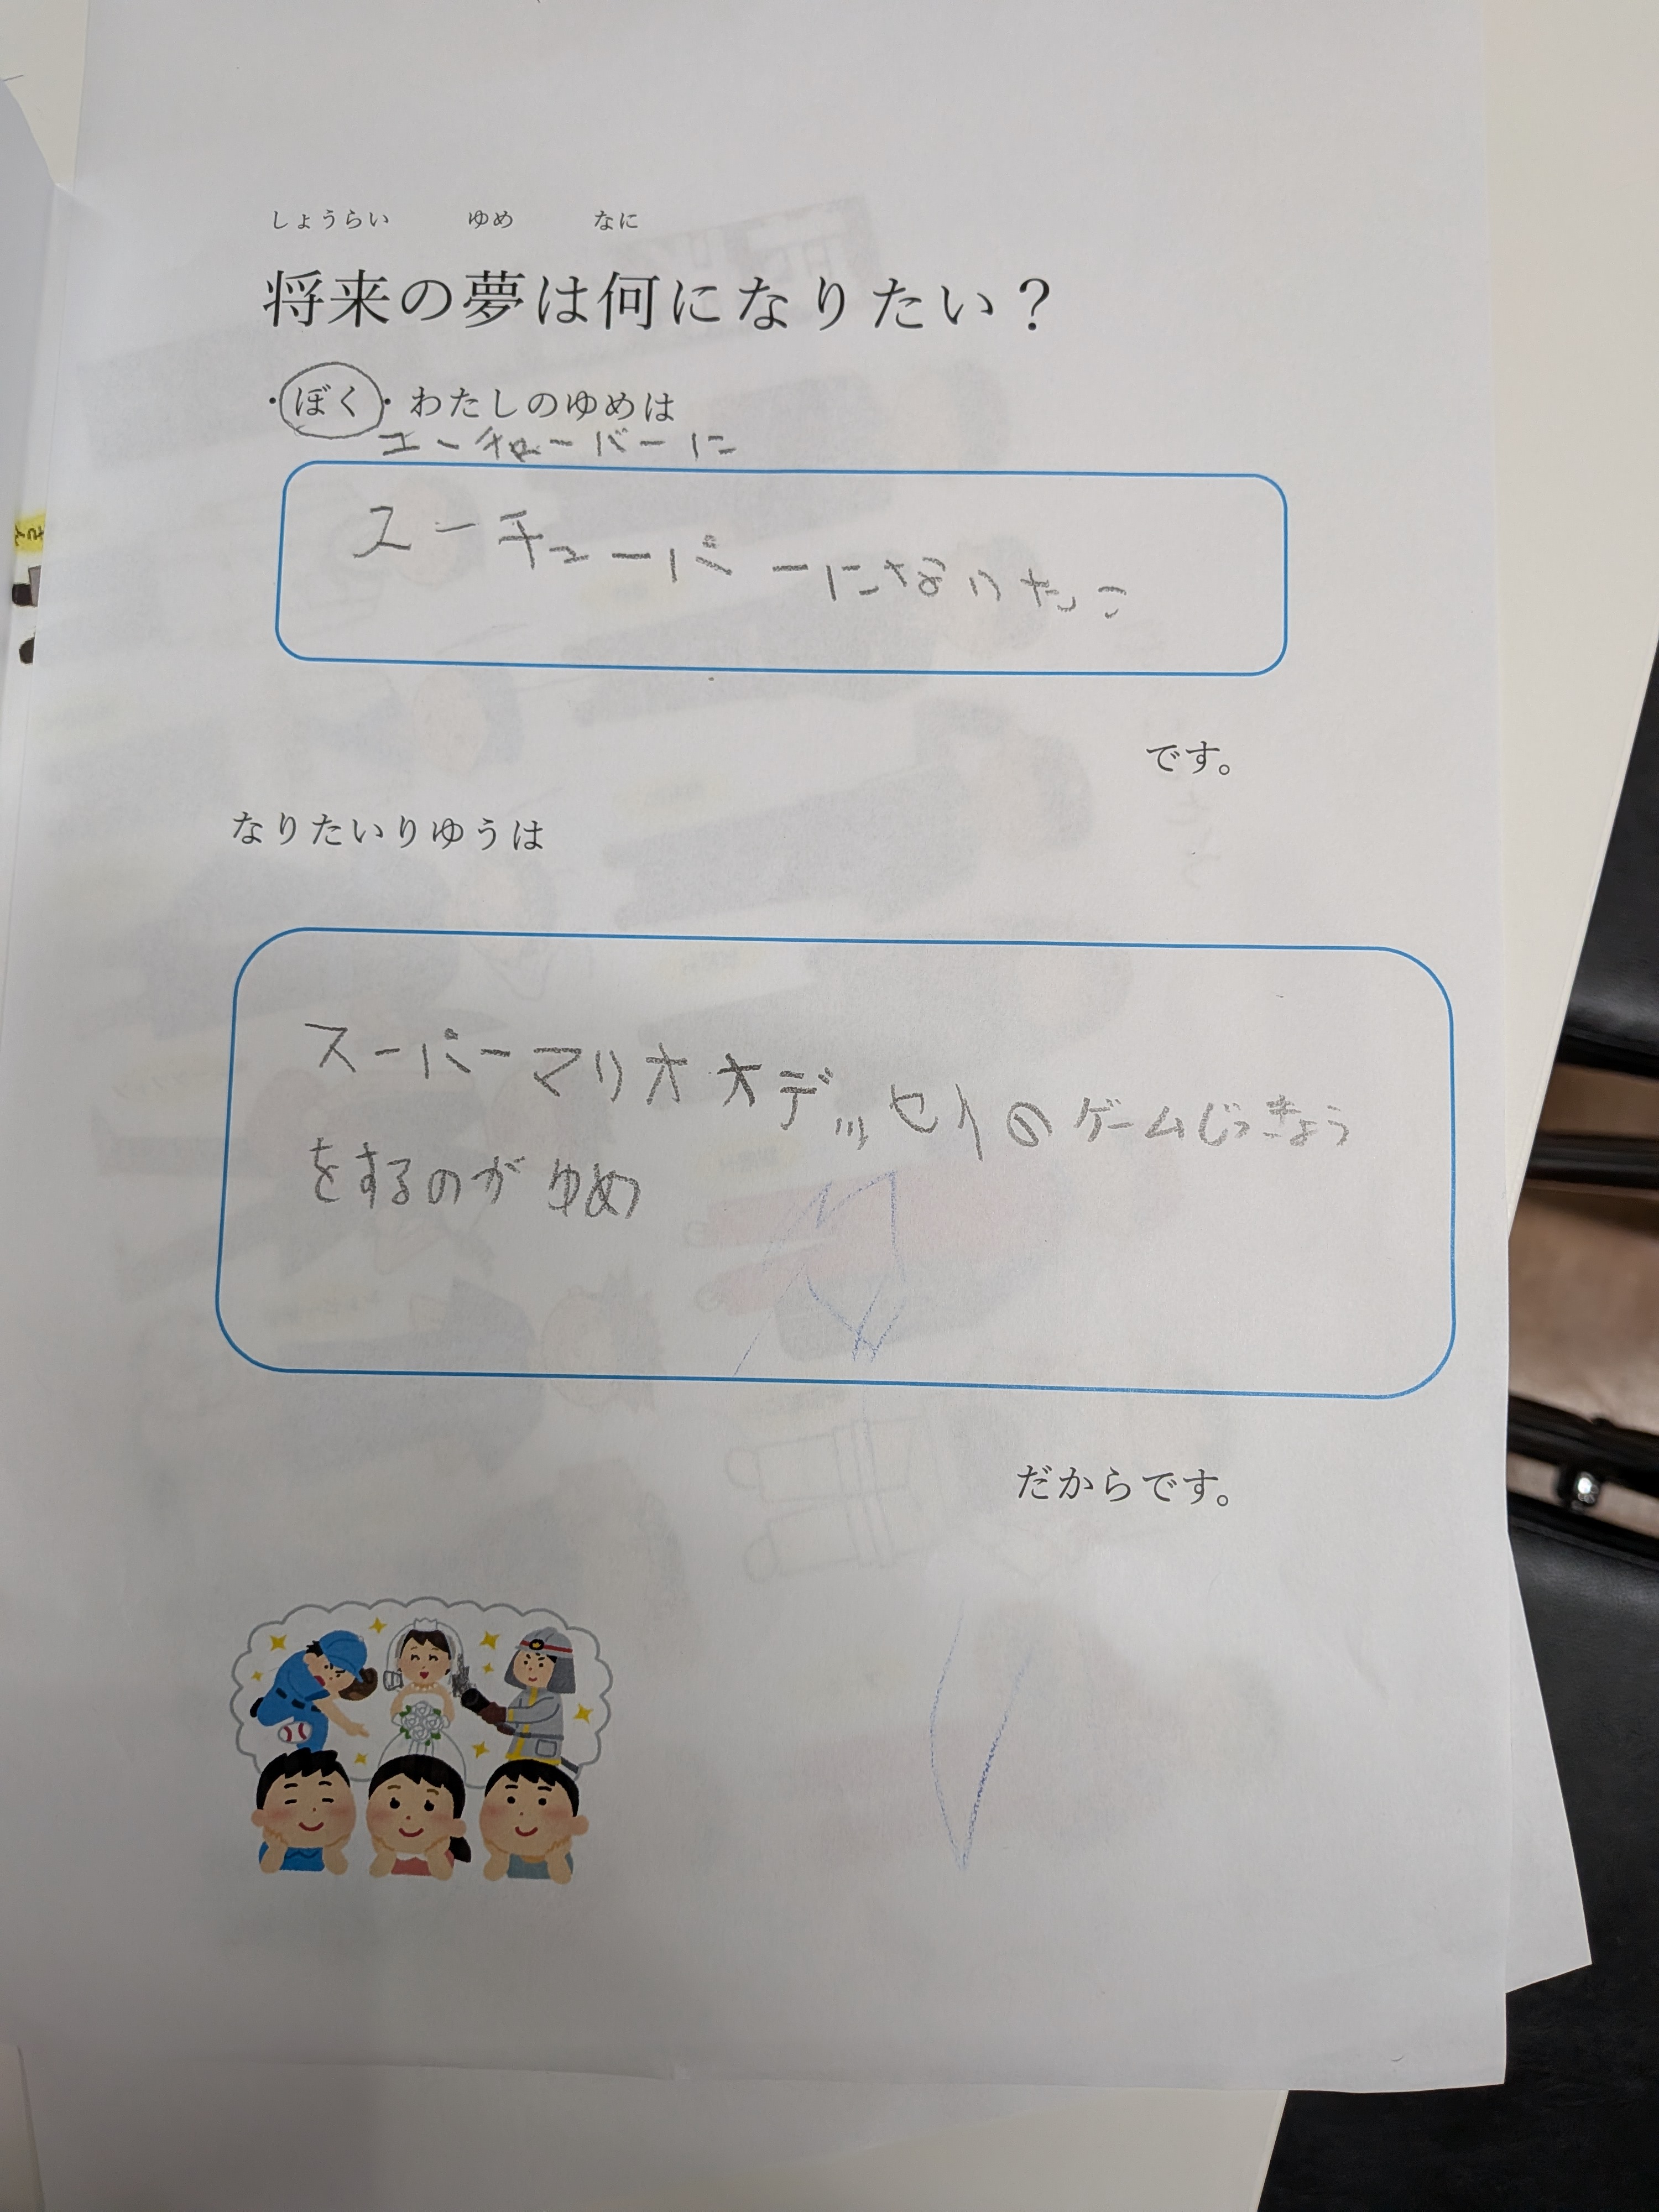 しょうらい ゆめ なに
将来の夢は何になりたい？
・ぼく・わたしのゆめは
エーチューバーに
スーチューバーになりたい
です。
なりたいりゆうは
スーパーマリオオデッセイのゲームじっきょう
をするのがゆめ
だからです。